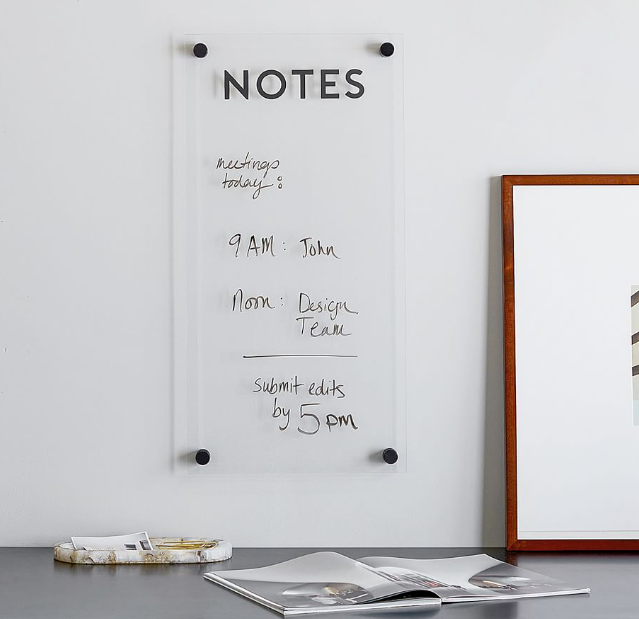 NOTES
meetings
today:
9 AM: John
Noon: Design
Team
submit edits
by 5 pm